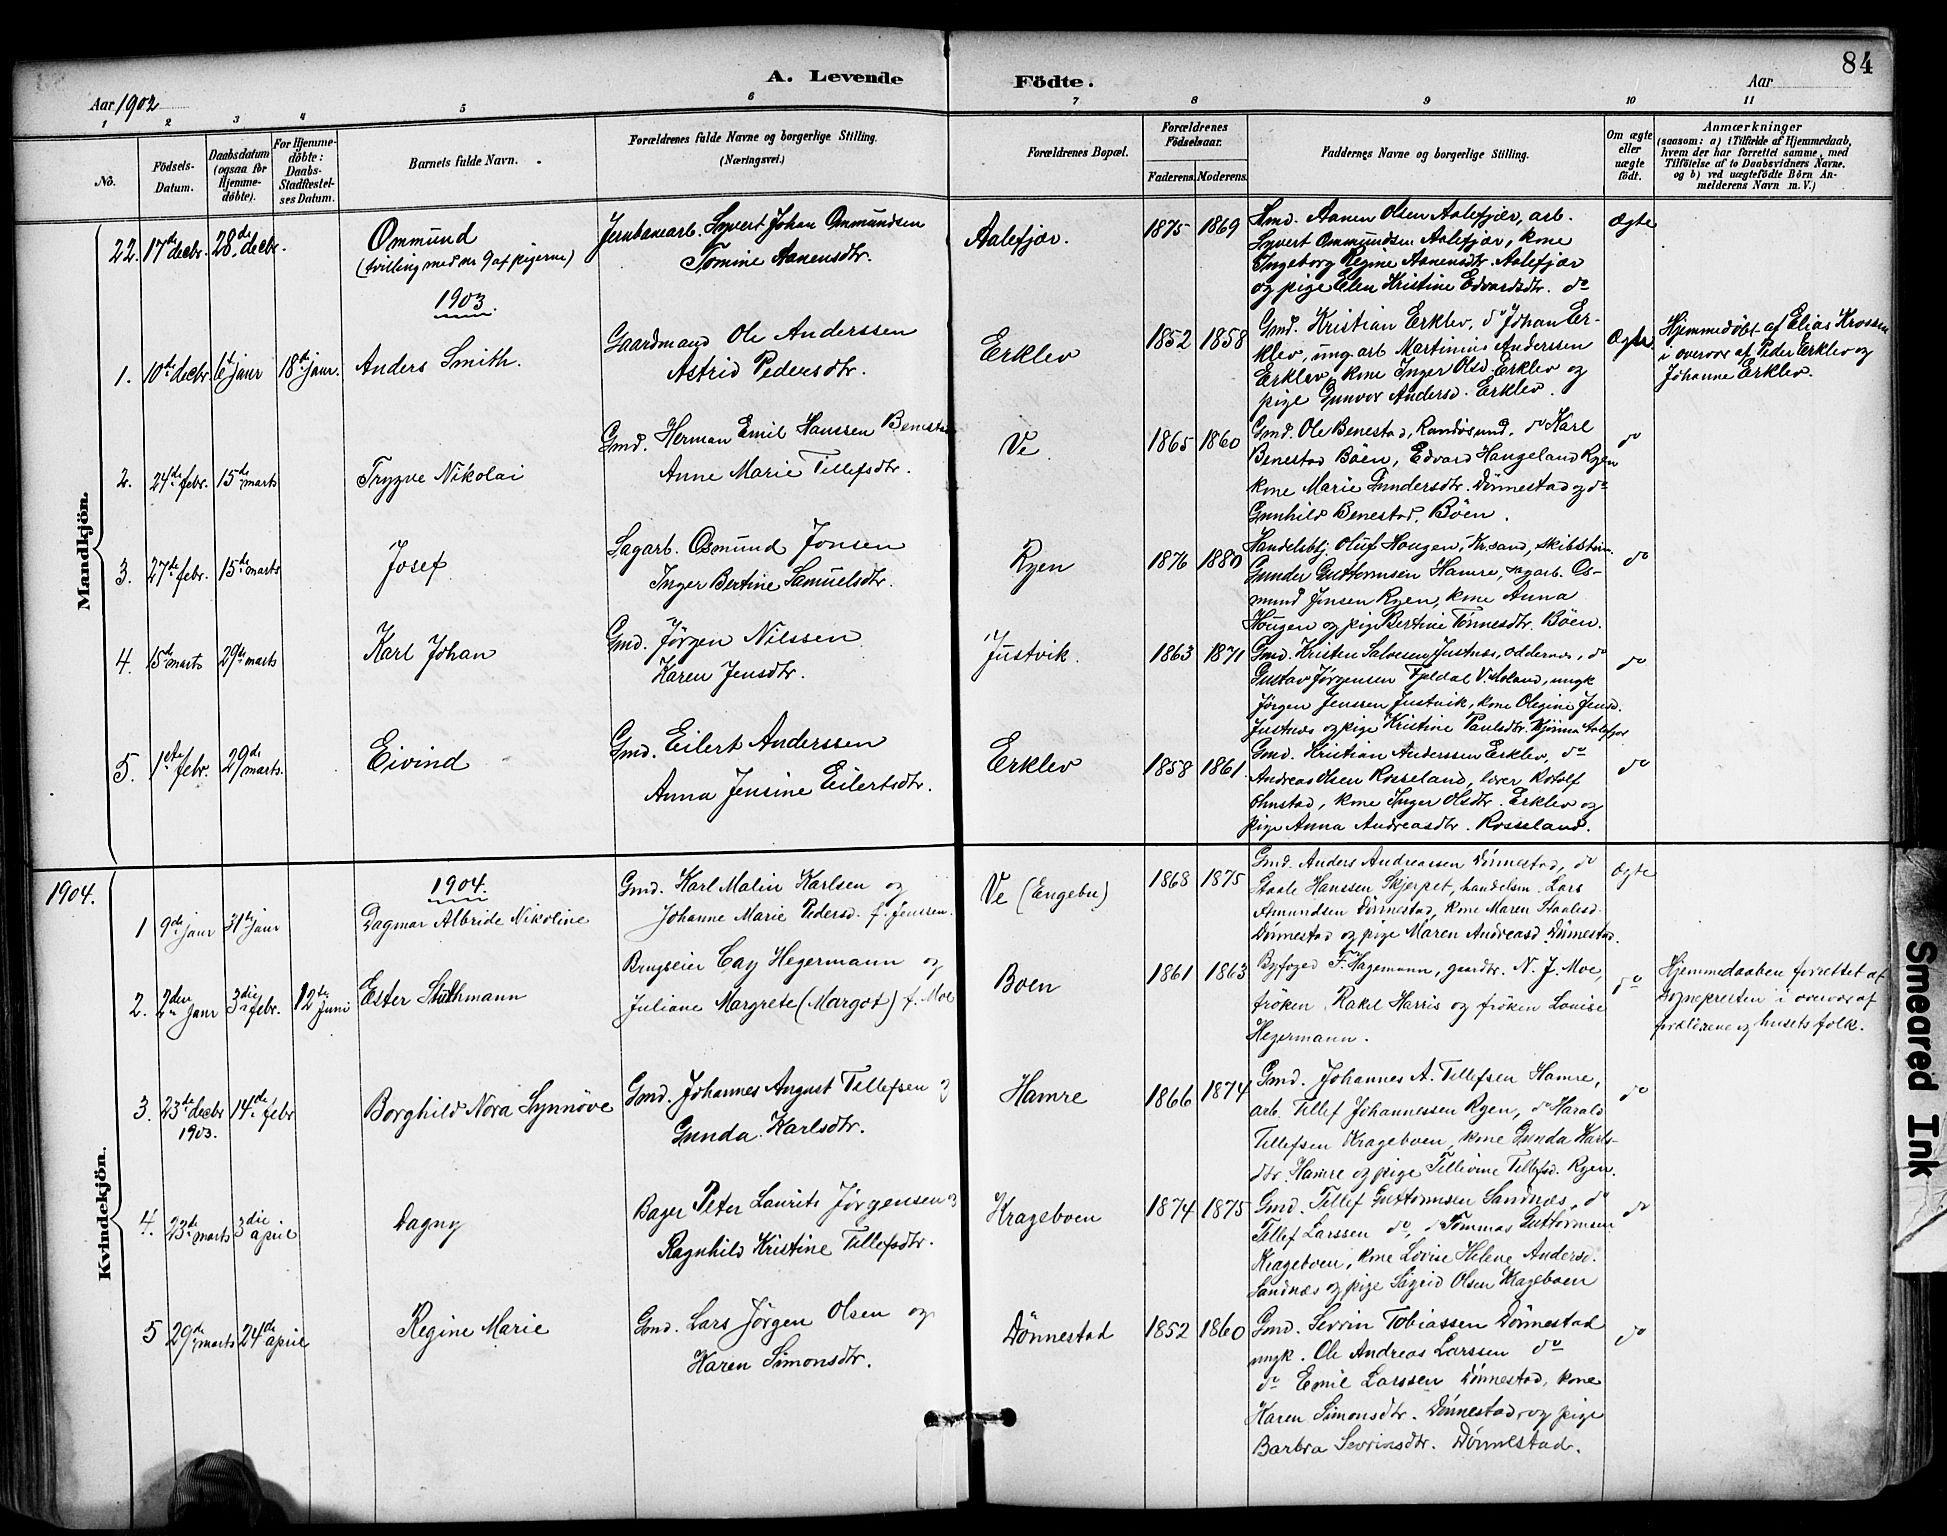 84
A. Levende Födte.
Aar 1902 Aar
1 2 3 4 5 6 7 8 9 10 11
No.
Födsels-Datum.
Daabsdatum (ogsaa for Hjemme-döbte).
For Hjemme-döbte: Daabs-Stadfæstel-ses Datum.
Barnets fulde Navn.
Forældrenes fulde Navne og borgerlige Stilling.
(Næringsvei.)
Forældrenes Bopæl.
Forældrenes Födselsaar.
Faderens. Moderens.
Faddernes Navne og borgerlige Stilling.
Om ægte eller uægte födt.
Anmærkninger
(saasom: a) i Tilfælde af Hjemmedaab, hvem der har forrettet samme, med Tilföielse af to Daabsvidners Navne. og b) ved uægtefödte Börn An-melderens Navn m. V.)
Mandkjön.
22. 17de decbr. 28de decbr.
Ommund
(tvilling med nr 9 af pigerne)
Jernbanearb. Syvert Johan Ommundsen
Tomine Aanensdtr.
Aalefjær. 1875 1869
Gmd. Aanen Olsen Aalefjær, arb.
Syvert Ommundsen Aalefjær, kone
Ingeborg Regine Aanensdtr. Aalefjær
og pige Elen Kristine Edvardsdtr. do
Ægte
1903.
1. 10de decbr 6t janr 18de janr.
Anders Smith.
Gaardmand Ole Anderssen
Astrid Pedersdtr.
Erklev 1852 1858
Gmd. Kristian Erklev, do Johan Er-
klev, ung. arb Martinius Anderssen
Erklev, kone Inger Olsd Erklev og
pige Gunvor Andersd. Erklev.
Ægte
Hjemmedøbt af Elias Krossen
i overvær af Peder Erklev og
Johanne Erklev.
2. 24de febr. 15de marts
Trygve Nikolai
Gmd. Herman Emil Hanssen Benestad
Anne Marie Tillefsdtr.
Ve 1865 1860
Gmd. Ole Benestad, Randøsund. do Karl
Benestad Boen, Edvard Haugeland Ryen
kone Marie Gundersdtr. Dønnestad og do
Gunhild Benestad, Böen.
do
3. 27de febr. 15de marts
Josef.
Sagarb. Osmund Jonsen
Inger Bertine Samuelsdtr.
Ryen 1876 1880
Handelsbtj. Oluf Hougen, Kr.sand, skibstøm.
Gunder Guttormsen Hamre, sagarb. Os-
mund Jensen Ryen, kone Anna
Hougen og pige Bertine Tønnesdtr. Böen.
do
4. 15de marts 29de marts
Karl Johan
Gmd. Jørgen Nilssen
Karen Jensdtr.
Justvik. 1863 1871
Gmd. Kristen Salvesen Justnæs, Oddernæs, do
Gustav Jørgensen Fjeldal V. Moland, ungk
Jørgen Jenssen Justvik, kone Olegine Jensd.
Justnæs og pige Kristine Paulsdtr. Aalefjær
do
5. 1ste febr. 29de marts.
Eivind
Gmd. Eilert Anderssen
Anna Jensine Eilertsdtr.
Erklev 1858 1861.
Gmd. Kristian Anderssen Erklev, do
Andreas Olsen Rosseland, lærer
Ohnstad, kone Inger Olsdtr. Erklev og
pige Anna Andreasdtr. Rosseland.
do
1904.
Kvindekjön.
1904.
1 9de janr 31te janr
Dagmar Albride Nikoline
Gmd. Karl Malin Karlsen og
Johanne Marie Pedersd. f. Jenssen.
Ve (Engebu) 1868 1875
Gmd. Anders Andreassen Dønnestad, do
Staale Hanssen Skjerpet, handelsm. Lars
Amundsen Dønnestad, kone Maren Staalesd.
Dønnestad og pige Maren Andreasd. Dønnestad.
Ægte
2. 2den janr 3die febr. 12te juni
Ester Stuhmann
Brugseier Cay Hegermann og
Juliane Margrete (Margot) f. Moe
Boen 1861 1863
Byfoged F. Hagemann, gaardbr. N. J. Moe,
frøken Rakel Harris og frøken Louise
Hegermann.
do
Hjemmedaaben forrettet af
sognepresten i overvær af
forældrene og husets folk.
3. 23de decbr 1903. 14de febr
Borghild Nora Synnöve
Gmd. Johannes August Tellefsen og
Gunda Karlsdtr.
Hamre 1866 1874
Gmd. Johannes A. Tellefsen Hamre,
arb. Tellef Johannessen Ryen, do Harald
Tellefsen Krageboen, kone Gunda Karls-
dtr. Hamre og pige Tellevine Tellefsd. Ryen.
do
4. 23de marts 3die april
Dagny
Bager Peter Laurits Jørgensen og
Ragnhild Kristine Tellefsdtr.
Krageboen 1874 1875
Gmd. Tellef Guttormsen Sandnæs, do
Tellef Larssen do, do Tommas Guttormsen
Krageboen, kone Lovise Helene Andersd.
Sandnæs og pige Sigrid Olsen Krageboen
do
5 29de marts 24de april
Regine Marie
Gmd. Lars Jørgen Olsen og
Karen Simonsdtr.
Dönnestad 1852 1860
Gmd. Sevrin Tobiassen Dönnestad
ungk. Ole Andreas Larssen do
do Emil Larssen Dönnestad, kone
Karen Simonsdtr. Dönnestad, og pige
Barbra Sevrinsdtr. Dönnestad.
do
Smeared Ink